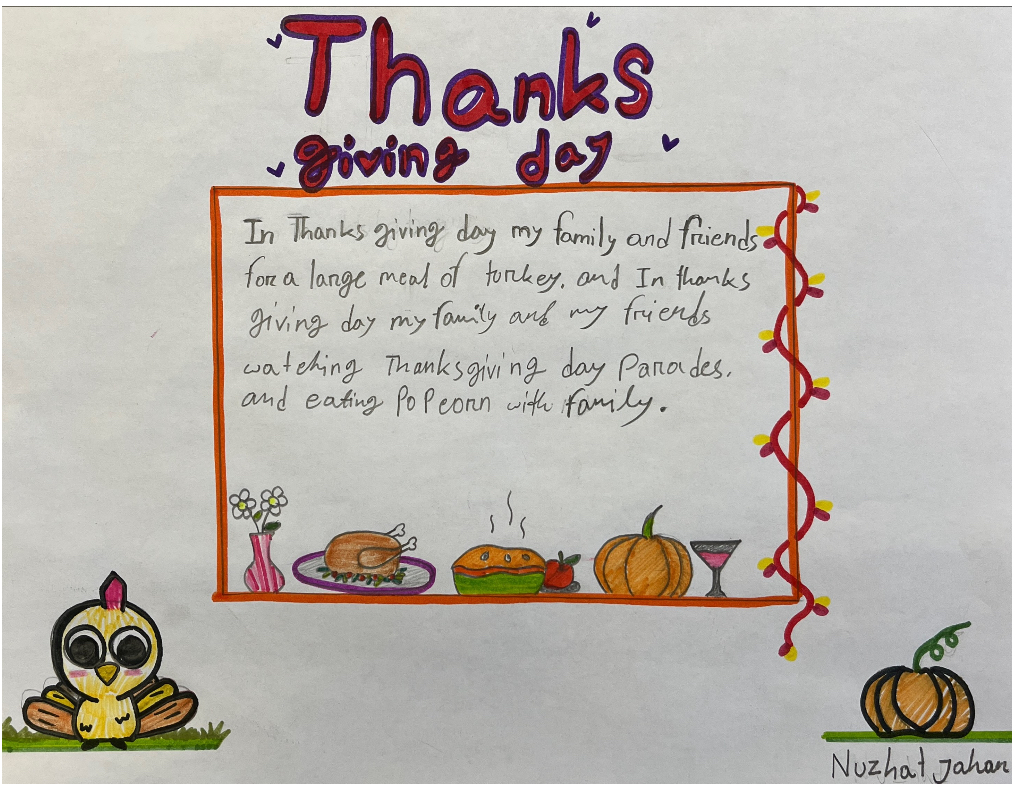 Thanks
giving day
In Thanks giving day my family and friends
for a large meal of torkey. and In thanks
giving day my family and my friends
watching Thanksgiving day Parades.
and eating PoPcorn with family.
Nuzhat Jahan